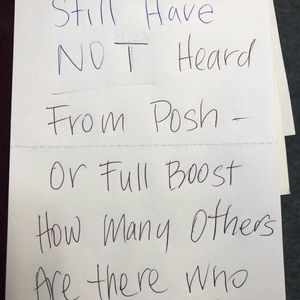 Still Have
NOT Heard
From Posh -
Or Full Boost
How Many Others
Are there who